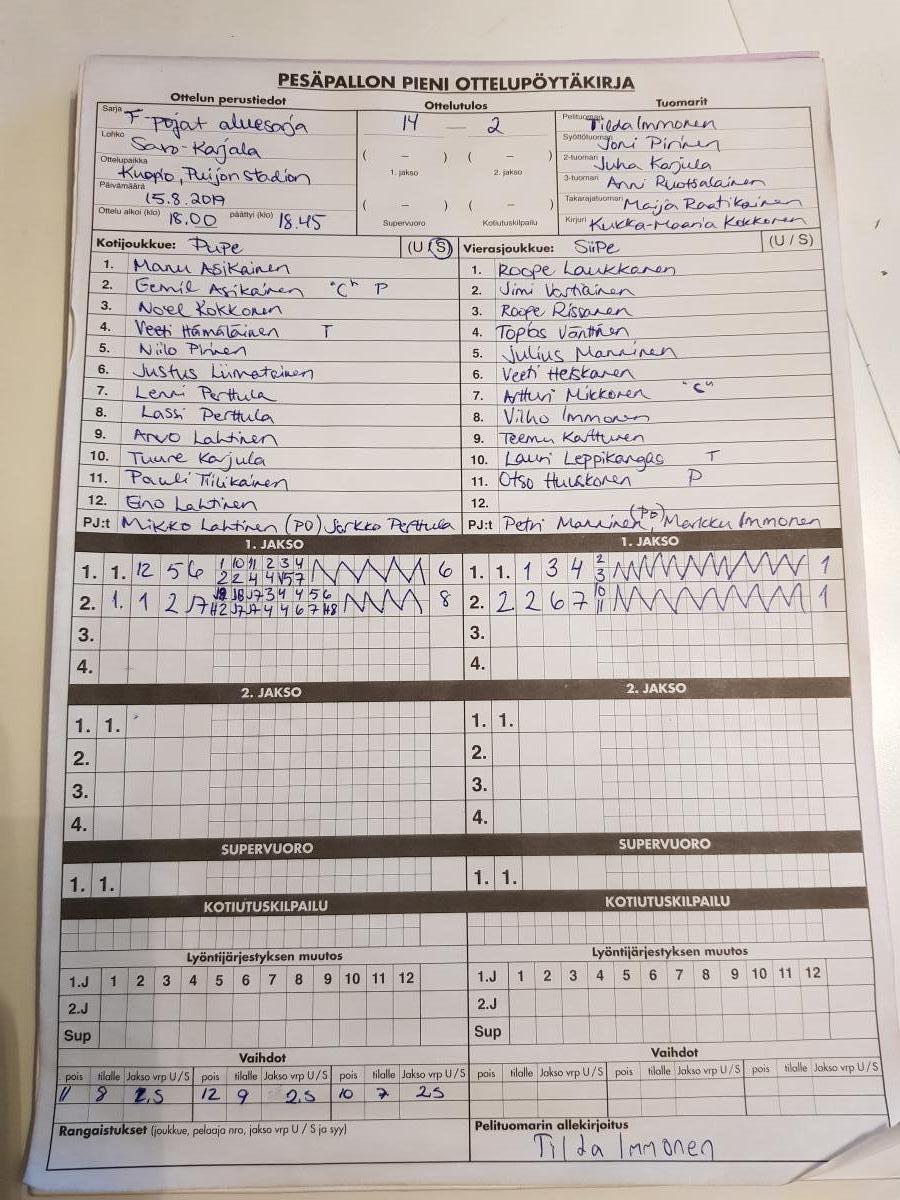 PESÄPALLON PIENI OTTELUPÖYTÄKIRJA
Ottelun perustiedot Ottelutulos Tuomarit
Sarja F-pojat aluesarja
Lohko Savo-Karjala
Ottelupaikka Kuopio, Puijon Stadion
Päivämäärä 15.8.2019
Ottelu alkoi (klo) 18.00 päättyi (klo) 18.45
14 — 2
( – ) ( – )
1. jakso 2. jakso
( – ) ( – )
Supervuoro Kotiutuskilpailu
Pelituomari Tilda Immonen
Syöttötuomari Joni Pirinen
2-tuomari Juha Karjula
3-tuomari Anni Ruotsalainen
Takarajatuomari Maija Raatikainen
Kirjuri Kukka-Maaria Kokkonen
Kotijoukkue: Pupe (U / S)
1. Manu Asikainen
2. Eemil Asikainen "C" P
3. Noel Kokkonen
4. Veeti Hämäläinen T
5. Niilo Pirinen
6. Justus Liimatainen
7. Lenni Perttula
8. Lassi Perttula
9. Arvo Lahtinen
10. Tuure Karjula
11. Pauli Tiilikainen
12. Eino Lahtinen
PJ:t Mikko Lahtinen (PO) Jarkko Perttula
Vierasjoukkue: SiiPe (U / S)
1. Roope Laukkanen
2. Jimi Vartiainen
3. Roope Rissanen
4. Topias Vänttinen
5. Julius Manninen
6. Veeti Heiskanen
7. Artturi Mikkonen "C"
8. Vilho Immonen
9. Teemu Karttunen
10. Lauri Leppikangas T
11. Otso Hulkkonen P
12.
PJ:t Petri Manninen (PO), Markku Immonen
1. JAKSO 1. JAKSO
1. 1. 12 5 6 6
2. 1. 1 2 8
3.
4.
1. 1. 1 3 4 2 3 1
2. 2 2 6 7 10 11 1
3.
4.
2. JAKSO 2. JAKSO
1. 1. 1. 1.
2. 2.
3. 3.
4. 4.
SUPERVUORO SUPERVUORO
1. 1. 1. 1.
KOTIUTUSKILPAILU KOTIUTUSKILPAILU
Lyöntijärjestyksen muutos Lyöntijärjestyksen muutos
1.J 1 2 3 4 5 6 7 8 9 10 11 12 1.J 1 2 3 4 5 6 7 8 9 10 11 12
2.J 2.J
Sup Sup
Vaihdot Vaihdot
pois tilalle Jakso vrp U / S pois tilalle Jakso vrp U / S pois tilalle Jakso vrp U / S pois tilalle Jakso vrp U / S pois tilalle Jakso vrp U / S pois tilalle Jakso vrp U / S
11 8 2,S 12 9 2,S 10 7 2S
Rangaistukset (joukkue, pelaaja nro, jakso vrp U / S ja syy)
Pelituomarin allekirjoitus
Tilda Immonen